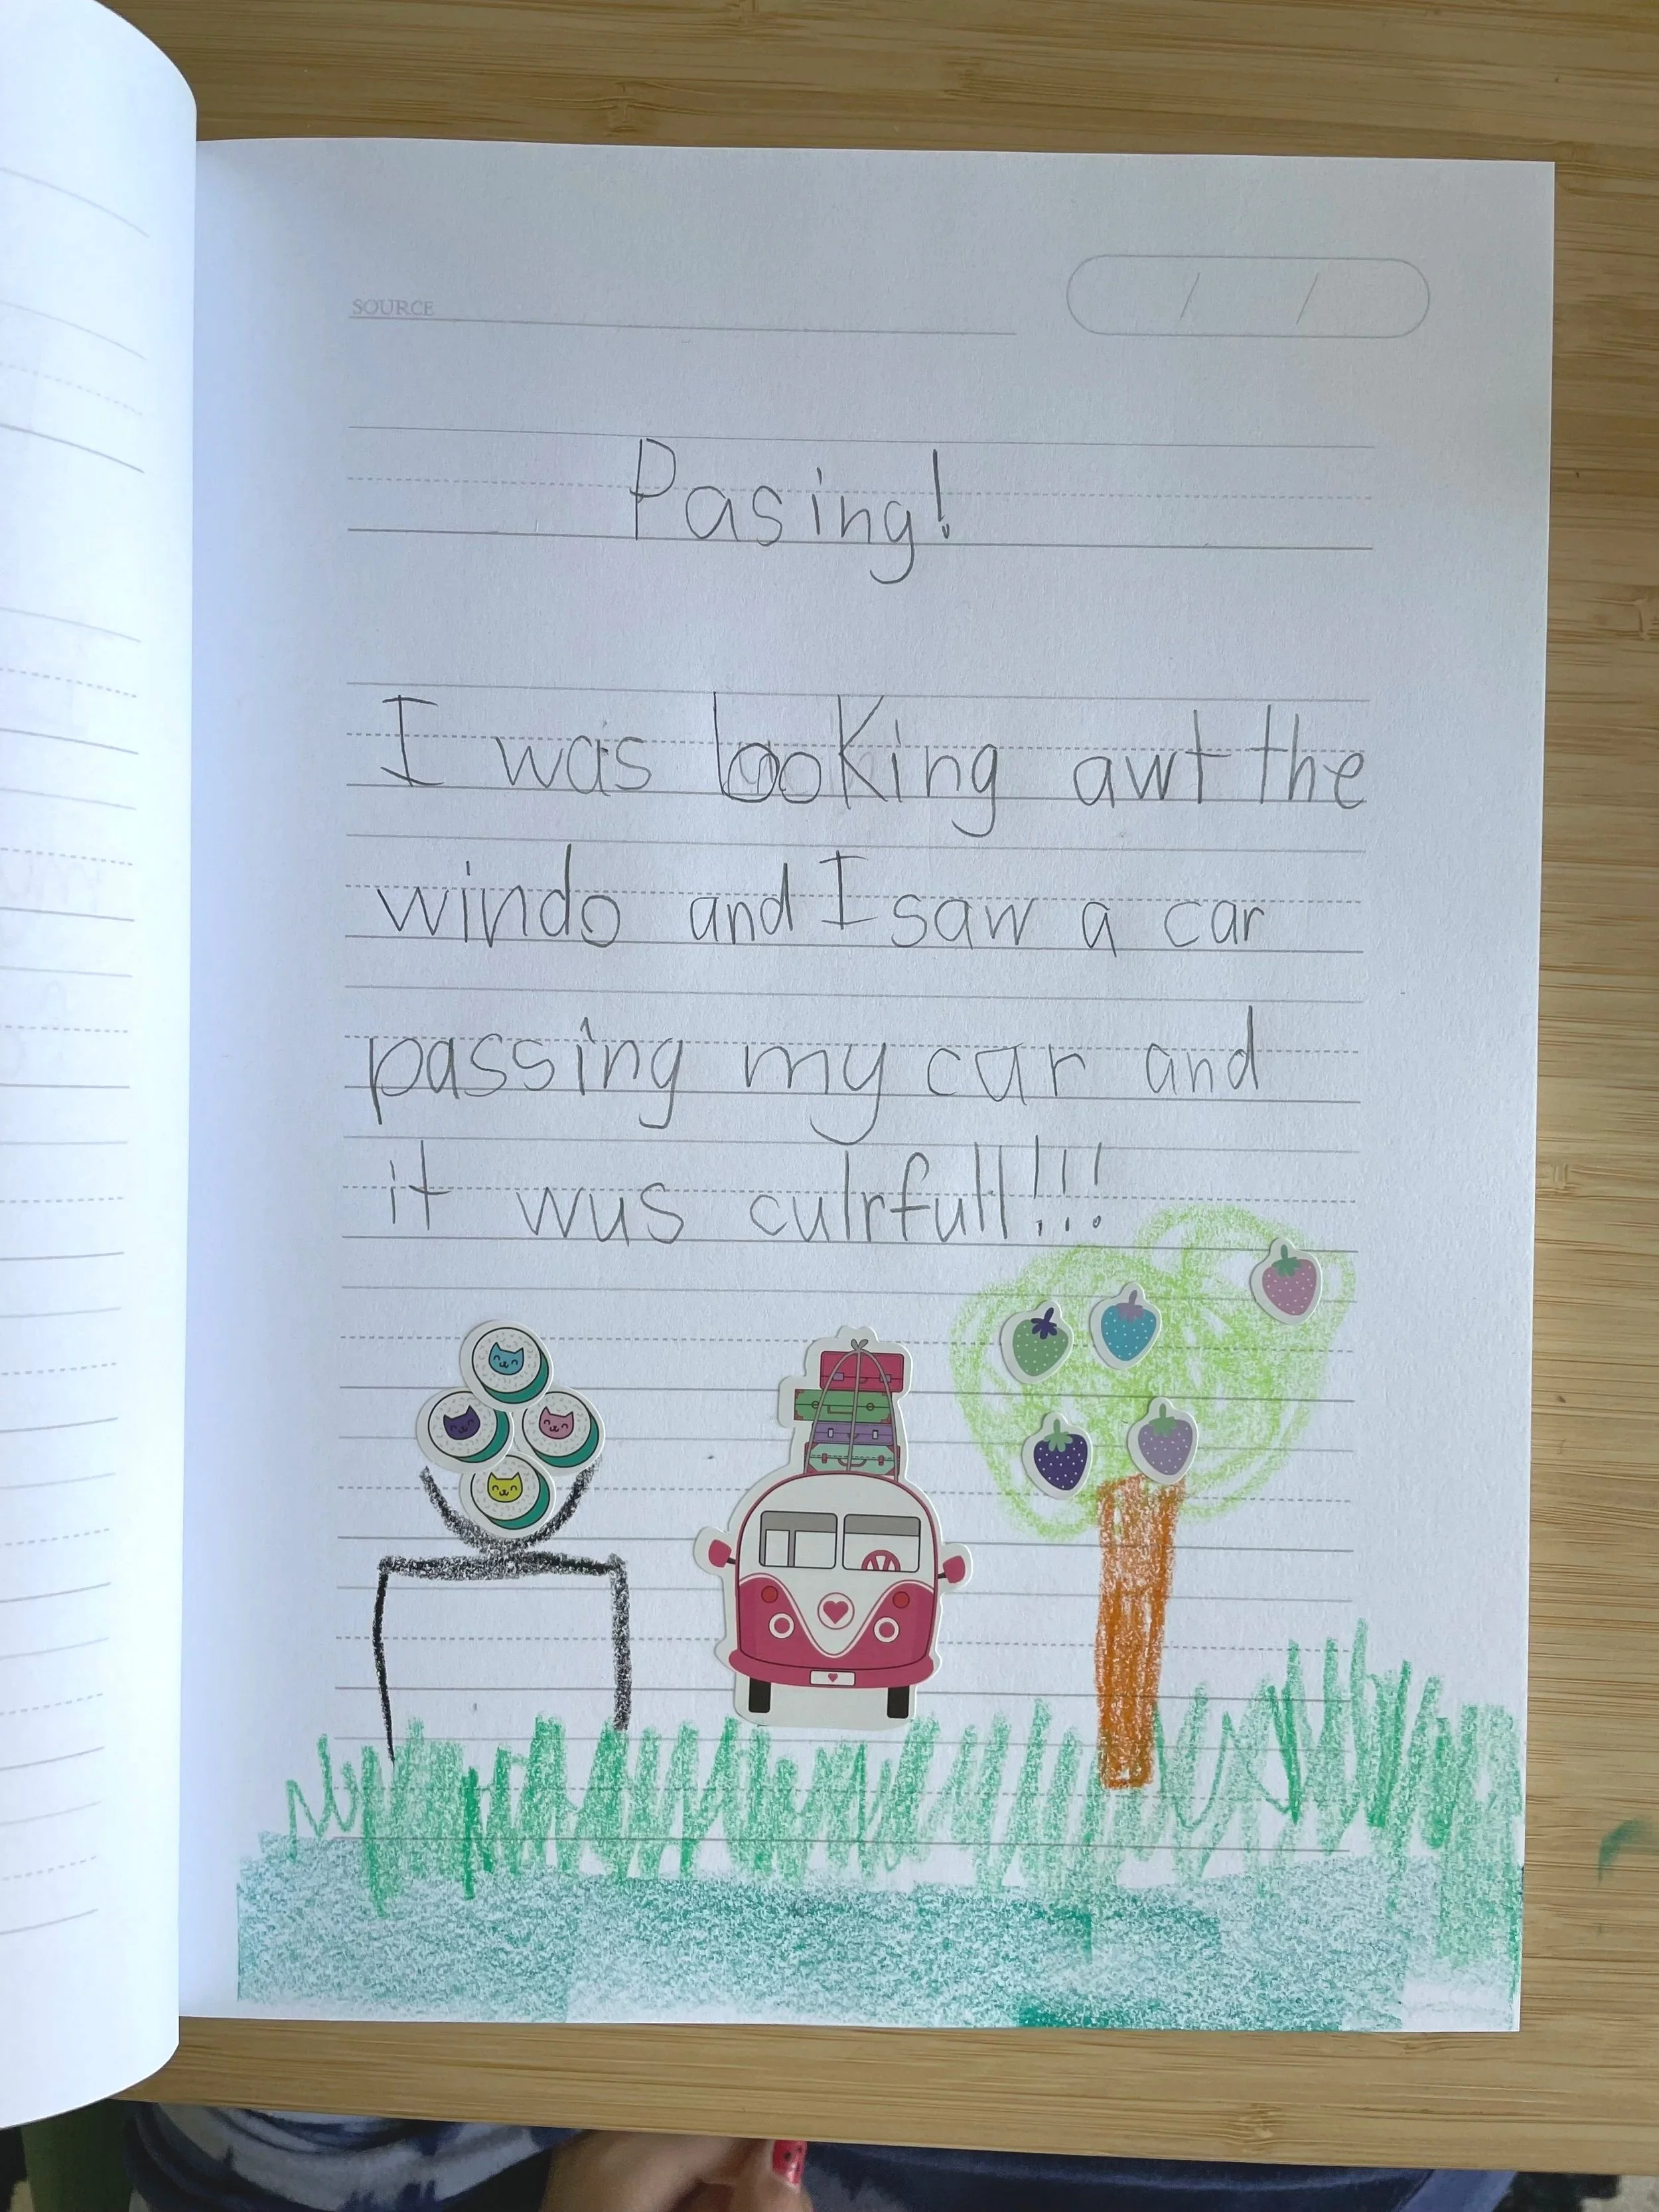 SOURCE
/ /
Pasing!
I was looking awt the
windo and I saw a car
passing my car and
it wus culrfull!!!